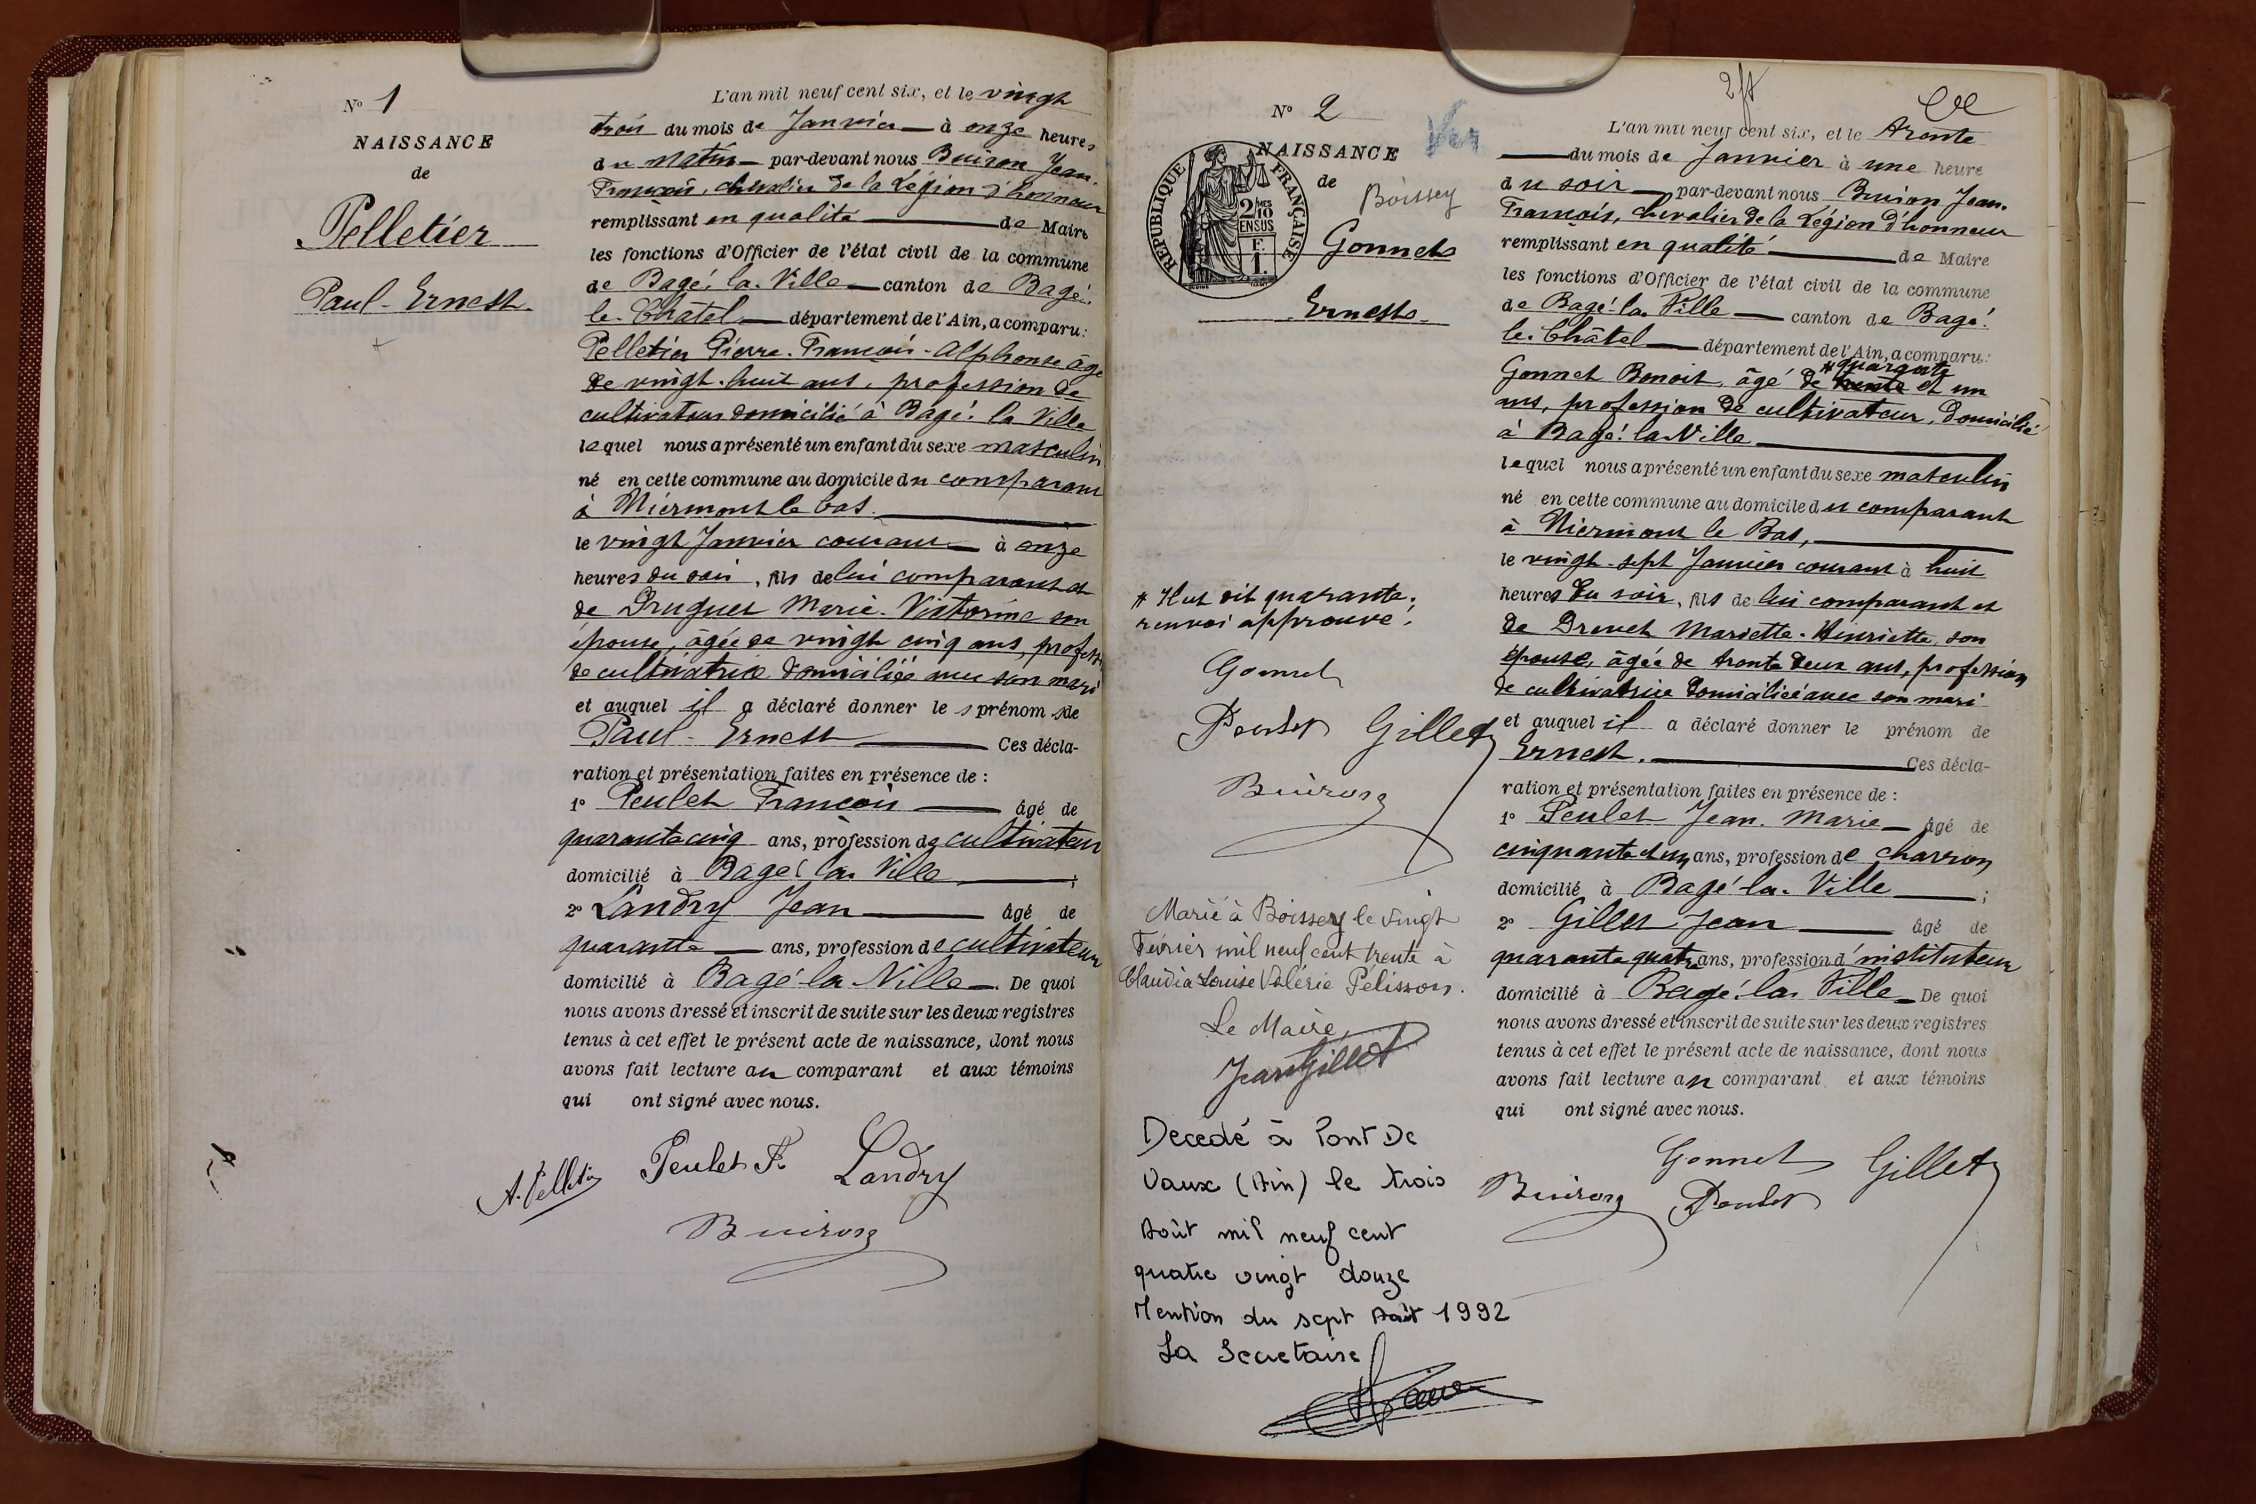 N° 1
NAISSANCE
de
Pelletier
Paul-Ernest.
L'an mil neuf cent six, et le vingt
trois du mois de Janvier à onze heures
du matin par-devant nous Buiron Jean-
François, chevalier de la Légion d'honneur
remplissant en qualité de Maire
les fonctions d'Officier de l'état civil de la commune
de Bagé-la-Ville canton de Bagé-
le-Châtel département de l'Ain, a comparu:
Pelletier Pierre-François-Alphonse âgé
de vingt-huit ans, profession de
cultivateur domicilié à Bagé-la-Ville
lequel nous a présenté un enfant du sexe masculin
né en cette commune au domicile du comparant
à Niermont le bas.
le vingt Janvier courant à onze
heures du soir, fils de lui comparant et
de Druguet Marie-Victorine son
épouse, âgée de vingt cinq ans, profession
de cultivatrice domiciliée avec son mari
et auquel il a déclaré donner les prénoms de
Paul-Ernest Ces décla-
ration et présentation faites en présence de :
1° Peulet François âgé de
quarante cinq ans, profession de cultivateur
domicilié à Bagé-la-Ville ;
2° Landry Jean âgé de
quarante ans, profession de cultivateur
domicilié à Bagé-la-Ville. De quoi
nous avons dressé et inscrit de suite sur les deux registres
tenus à cet effet le présent acte de naissance, dont nous
avons fait lecture au comparant et aux témoins
qui ont signé avec nous.
A. Pelletier Peulet F. Landry
Buiron
N° 2
NAISSANCE
de
Boissey
Gonnet
Ernest.
RÉPUBLIQUE FRANÇAISE
2/10 MES
EN SUS
F.
1.
* Mot dit quarante.
renvoi approuvé.
Gonnet
Peulet Gillet
Buiron
Marié à Boissey le vingt
Février mil neuf cent trente à
Claudia Louise Valérie Pélisson.
Le Maire,
Jean Gillet
Decedé à Pont De
Vaux (Ain) le trois
Août mil neuf cent
quatre vingt douze
Mention du sept Août 1992
La Secretaire
L'an mil neuf cent six, et le trente
du mois de Janvier à une heure
du soir par-devant nous Buiron Jean-
François, chevalier de la Légion d'honneur
remplissant en qualité de Maire
les fonctions d'Officier de l'état civil de la commune
de Bagé-la-Ville canton de Bagé-
le-Châtel département de l'Ain, a comparu:
* quarante
Gonnet Benoit, âgé de trente et un
ans, profession de cultivateur, domicilié
à Bagé-la-Ville
lequel nous a présenté un enfant du sexe masculin
né en cette commune au domicile du comparant
à Niermont le Bas,
le vingt-sept Janvier courant à huit
heures du soir, fils de lui comparant et
de Drevet Mariette-Henriette, son
épouse, âgée de trente deux ans, profession
de cultivatrice domiciliée avec son mari
et auquel il a déclaré donner le prénom de
Ernest. Ces décla-
ration et présentation faites en présence de :
1° Peulet Jean-Marie âgé de
cinquante et un ans, profession de charron
domicilié à Bagé-la-Ville ;
2° Gillet Jean âgé de
quarante quatre ans, profession d'instituteur
domicilié à Bagé-la-Ville De quoi
nous avons dressé et inscrit de suite sur les deux registres
tenus à cet effet le présent acte de naissance, dont nous
avons fait lecture au comparant et aux témoins
qui ont signé avec nous.
Gonnet Gillet
Buiron Peulet